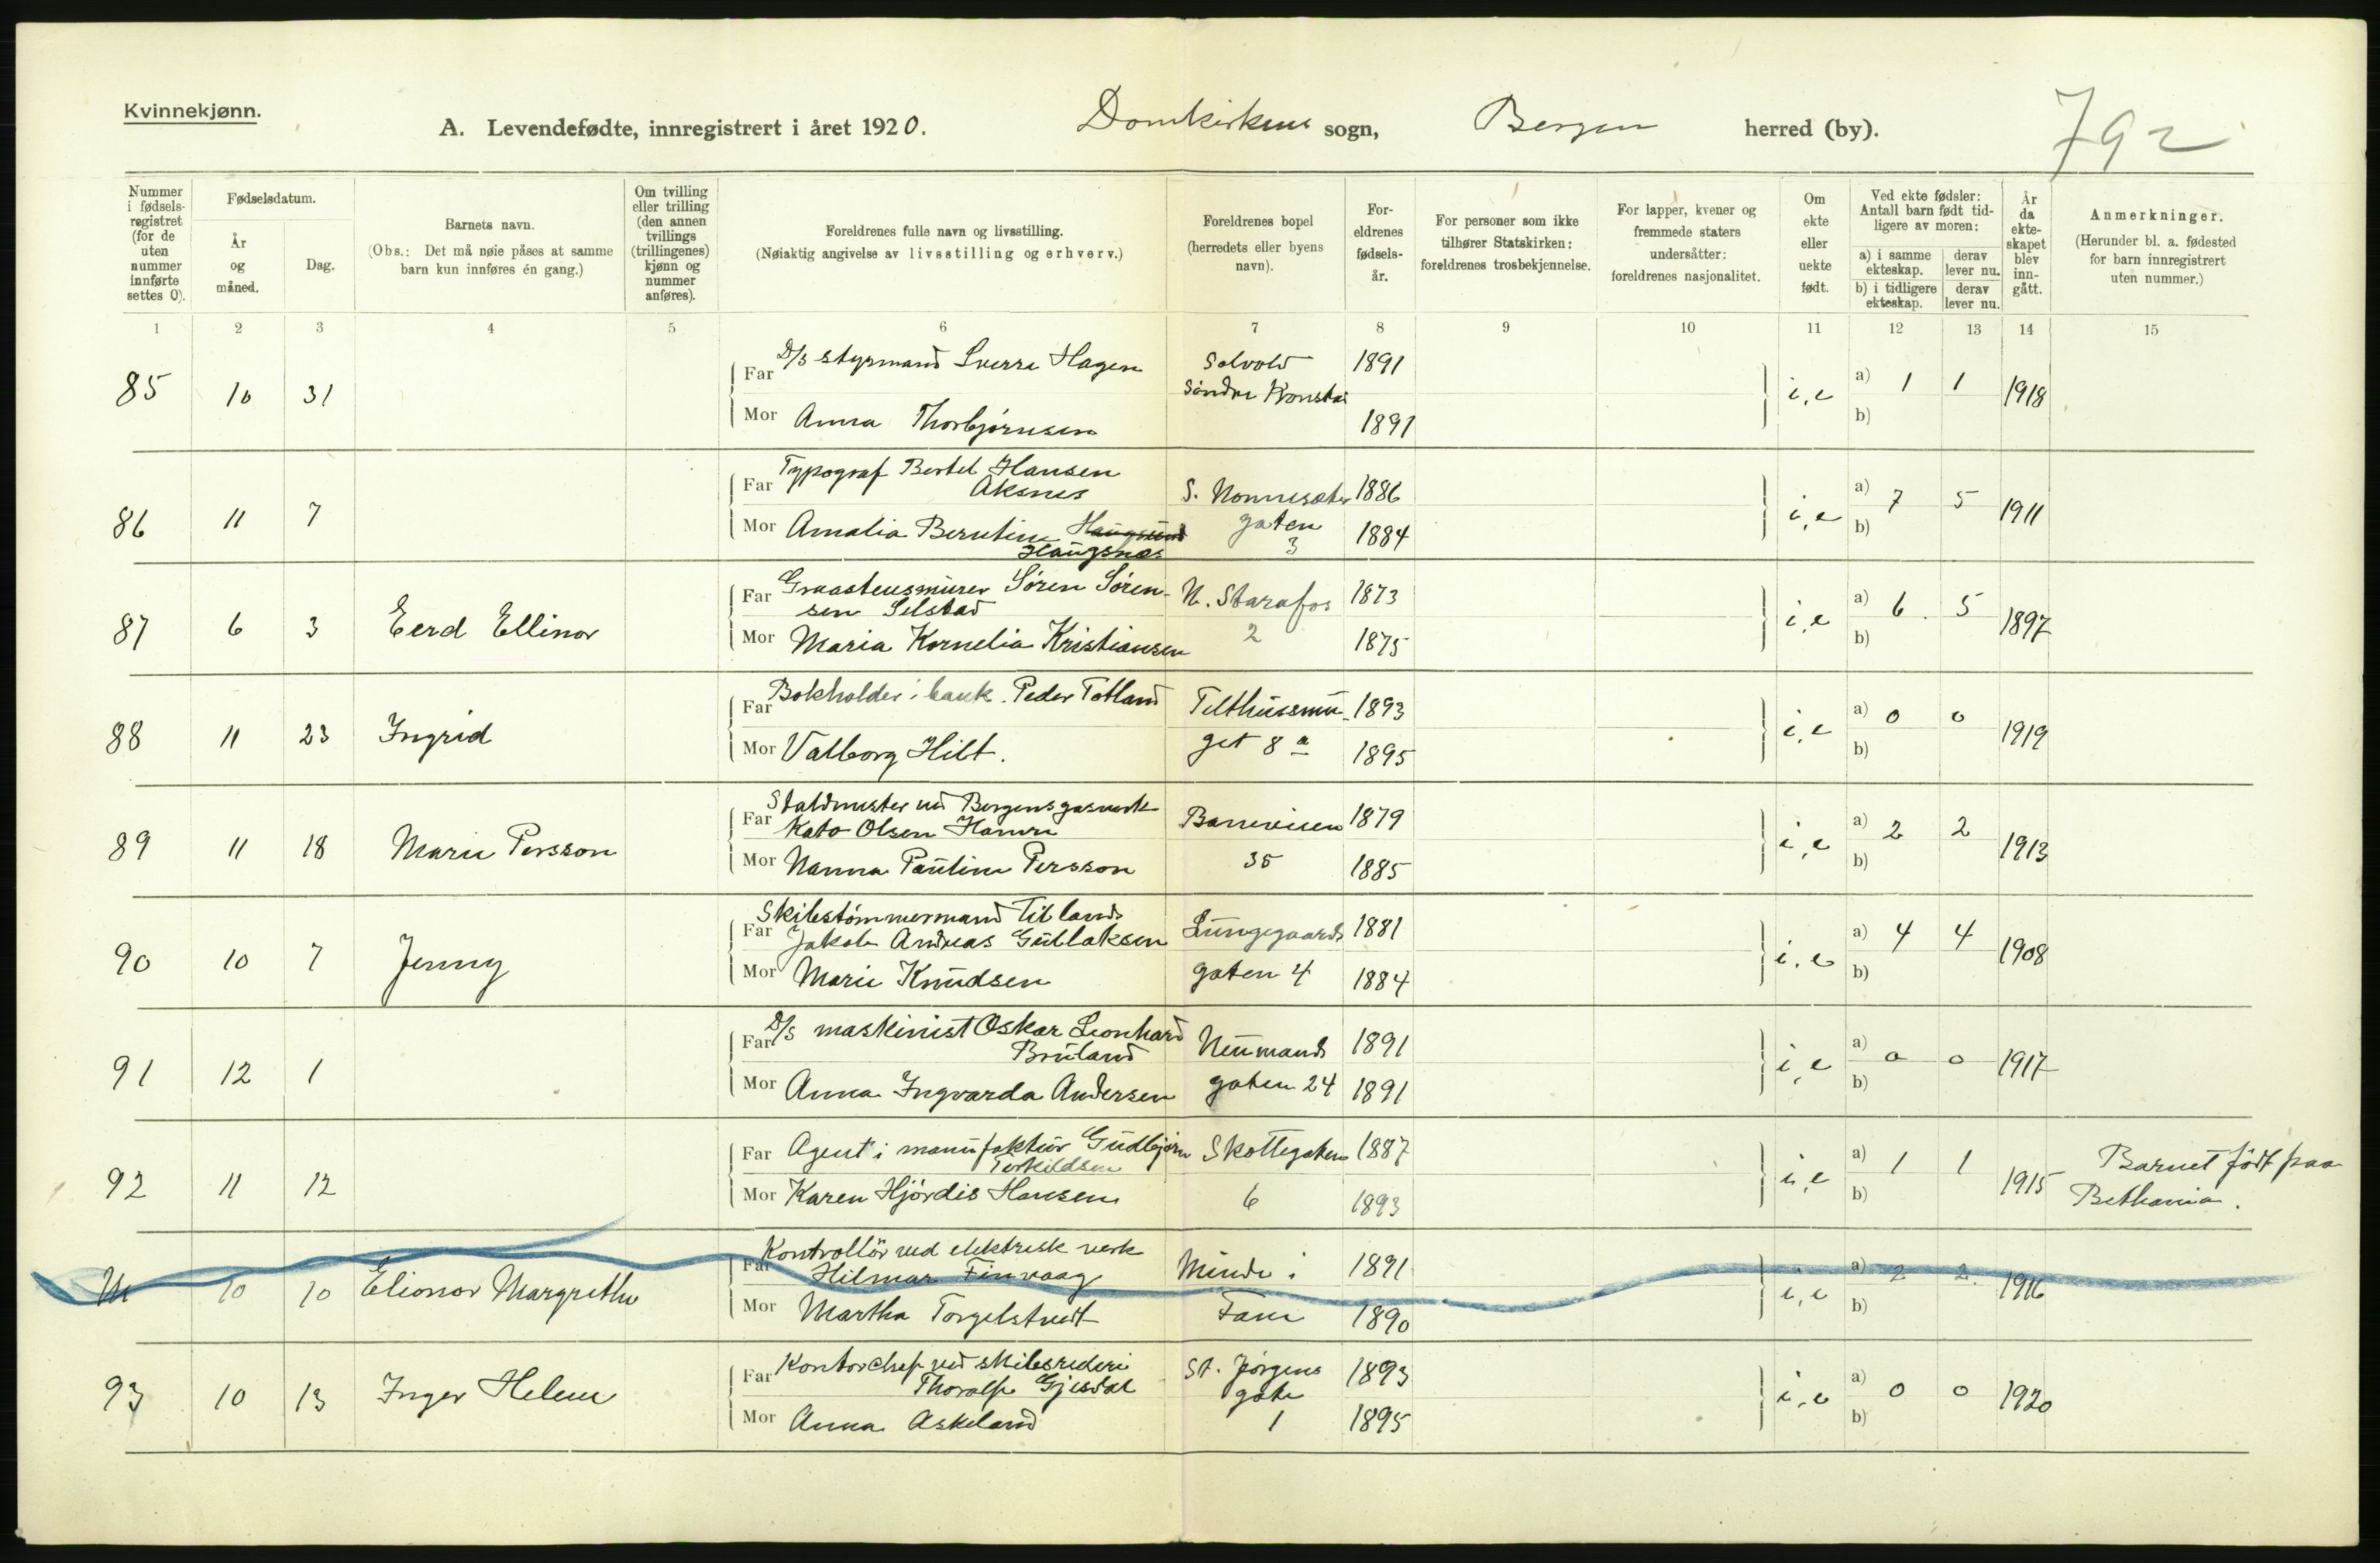 Kvinnekjønn.
A. Levendefødte, innregistrert i året 1920. Domkirkens sogn, Bergen herred (by). 792
Nummer i fødselsregistret (for de uten nummer innførte settes 0).
Fødselsdatum.
År og måned.
Dag.
Barnets navn.
(Obs.: Det må nøie påses at samme barn kun innføres én gang.)
Om tvilling eller trilling (den annen tvillings (trillingenes) kjønn og nummer anføres).
Foreldrenes fulle navn og livsstilling.
(Nøiaktig angivelse av livsstilling og erhverv.)
Foreldrenes bopel (herredets eller byens navn).
Foreldrenes fødselsår.
For personer som ikke tilhører Statskirken: foreldrenes trosbekjennelse.
For lapper, kvener og fremmede staters undersåtter: foreldrenes nasjonalitet.
Om ekte eller uekte født.
Ved ekte fødsler: Antall barn født tidligere av moren:
a) i samme ekteskap. derav lever nu.
b) i tidligere ekteskap. derav lever nu.
År da ekteskapet blev inngått.
Anmerkninger.
(Herunder bl. a. fødested for barn innregistrert uten nummer.)
1 2 3 4 5 6 7 8 9 10 11 12 13 14 15
85 10 31
Far D/s styrmand Sverre Hagen Solvold 1891
Søndre Kronstad
Mor Anna Thorbjørnsen 1891
i, e a) 1 1 b) 1918
86 11 7
Far Typograf Bertel Hansen
Aksnes S. Nonnesæter 1886
Mor Amalia Berntine Haugsund gaten 1884
Haugsnes 3
i, e a) 7 5 b) 1911
87 6 3 Eerd Ellinor
Far Graastensmurer Søren Søren-
sen Selstad N. Starafos 1873
Mor Maria Kornelia Kristiansen 2 1875
i, e a) 6 5 b) 1897
88 11 23 Ingrid
Far Bokholder i bank. Peder Totland Telthussmu- 1893
Mor Valborg Hilt. get 8 a 1895
i, e a) 0 0 b) 1919
89 11 18 Marie Persson
Far Staldmester ved Bergens gasverk
Kato Olsen Hamre 1879
Mor Nanna Pauline Persson 35 1885
i, e a) 2 2 b) 1913
90 10 7 Jenny
Far Skibstømmermand tillands
Jakob Andreas Gullaksen Lungegaards 1881
Mor Marie Knudsen gaten 4 1884
i, e a) 4 4 b) 1908
91 12 1
Far D/s maskinist Oskar Leonhard
Bruland Neumands 1891
Mor Anna Ingvarda Andersen gaten 24 1891
i, e a) 0 0 b) 1917
92 11 12
Far Agent i manufaktur Gudbjørn Skottegaten 1887
Terkildsen
Mor Karen Hjørdis Hansen 6 1893
i, e a) 1 1 b) 1915 Barnet født paa
Bethania.
10 10 Elionor Margrethe
Far Kontrollør ved elektrisk verk
Hilmar Finvaag Minde i 1891
Mor Martha Torgelstvedt Fane 1890
i, e a) 2 2. b) 1916
93 10 13 Inger Helene
Far Kontorchef ved skibsrederi St. Jørgens 1893
Thoralf Gjesdal gate
Mor Anna Askeland 1 1895
i, e a) 0 0 b) 1920